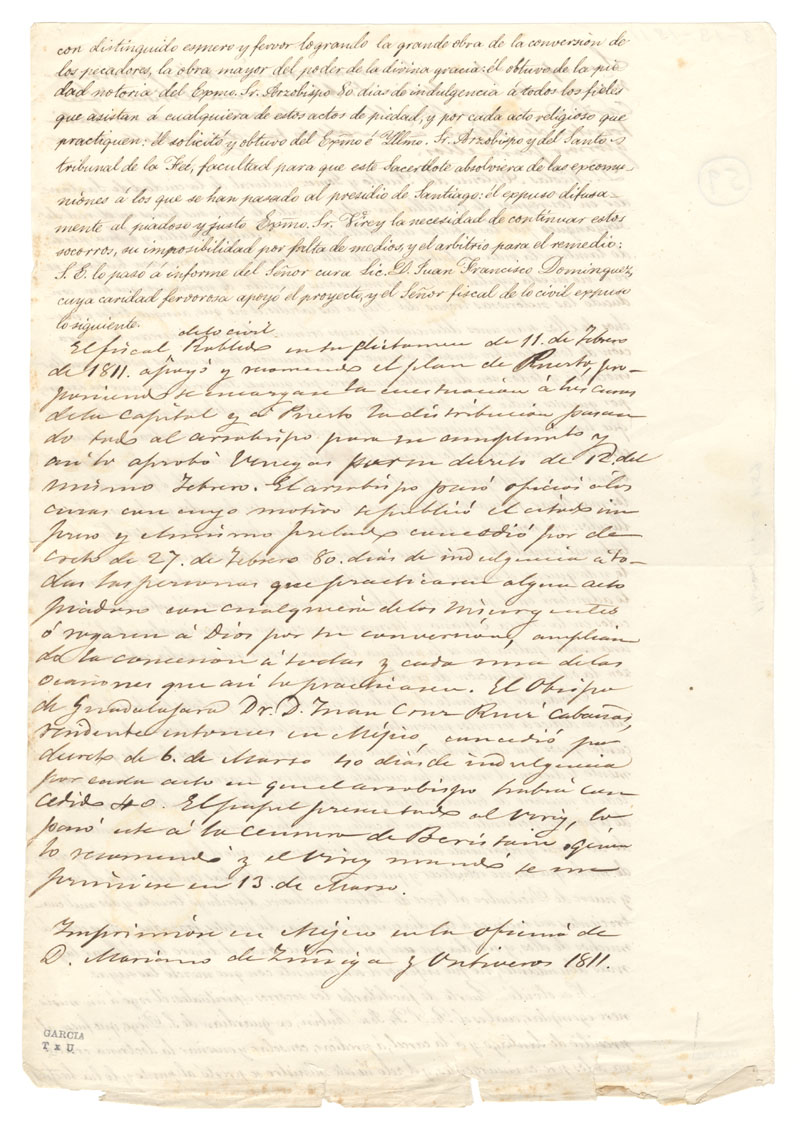 con distinguido esmero y fervor logrando la grande obra de la conversión de
los pecadores, la obra mayor del poder de la divina gracia: él obtuvo de la pie
dad notoria del Exmo. Sr. Arzobispo 80 dias de indulgencia á todos los fieles
que asistan á cualquiera de estos actos de piedad, y por cada acto religioso que
practiquen: él solicitó y obtuvo del Exmo é Yllmo. Sr. Arzobispo y del Santo
tribunal de la Feé, facultad para que este Sacerdote absolviera de las excomu-
niones á los que se han pasado al presidio de Santiago: él expuso difusa-
mente al piadoso y justo Exmo. Sr. Virey la necesidad de continuar estos
socorros, su imposibilidad por falta de medios, y el arbitrio para el remedio:
S. E. lo paso á informe del Señor cura Lic. D. Juan Francisco Dominguez,
cuya caridad fervorosa apoyó el proyecto, y el Señor fiscal de lo civil expuso
lo siguiente.
de lo civil
El fiscal Robledo en su dictamen de 11. de Febrero
de 1811. apoyó y recomendó el plan de Puerto, pro-
poniendo se encargase la cuestuacion á los curas
de la capital y á Puerto la distribucion, pasan
do todo al arzobispo para su cumplimto y
asi lo aprobó Venegas por su decreto de 12. del
mismo Febrero. El arzobispo pasó oficios á los
curas con cuyo motivo se publicó el citado im
preso y el mismo prelado concedió por de
creto de 27. de Febrero 80. dias de indulgencia á to-
das las personas que practicaren algun acto
piadoso con cualquiera de los insurgentes
ó rogaren á Dios por su conversion, amplian
do la concesion á todas y cada una de las
ocasiones que asi lo practicasen. El Obispo
de Guadalajara Dr. D. Juan Cruz Ruiz Cabañas,
residente entonces en Méjico, concedió por
decreto de 6. de Marzo 40 dias de indulgencia
por cada acto en que el arzobispo habia con
cedido 80. El papel presentado al Virey, lo
pasó este á la censura de Beristain quien
lo recomendó y el Virey mandó se im
primiese en 13. de Marzo.
Imprimióse en Méjico en la oficina de
D. Mariano de Zúñiga y Ontiveros 1811.
GARCIA
T x U
59